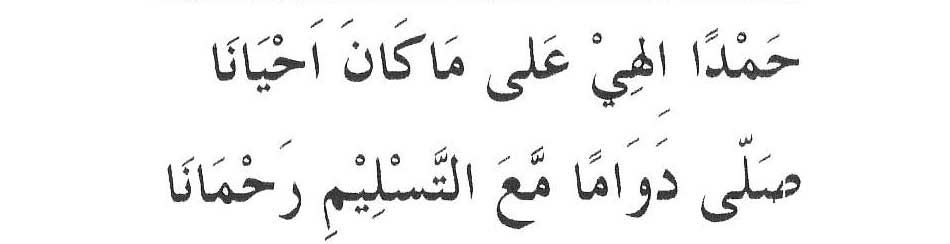 حَمْدًا اِلٰهِيْ عَلى مَا كَانَ اَحْيَانَا
صَلّى دَوَامًا مَّعَ التَّسْلِيْمِ رَحْمَانَا